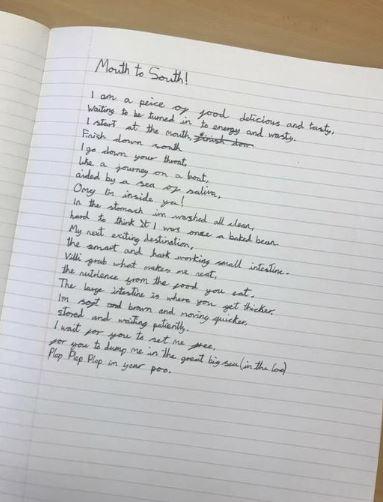 Mouth to South!
I am a peice of food delicious and tasty,
Waiting to be turned in to energy and wasty.
I start at the mouth finish dow
Finish down south
I go down your throat,
like a journey on a boat,
aided by a sea of saliva,
Omg Im inside ya!
In the stomach im washed all clean,
hard to think tt I was once a baked bean.
My next exiting destination,
the smart and hark working small intestine.
Villi grab what makes me neat,
the nutrience from the food you eat.
The large intestine is where you get thicker,
Im soft and brown and moving quicker,
stored and waiting patiently.
I wait for you to set me free,
for you to dump me in the great big sea (in the loo)
Plop Plop Plop in your poo.